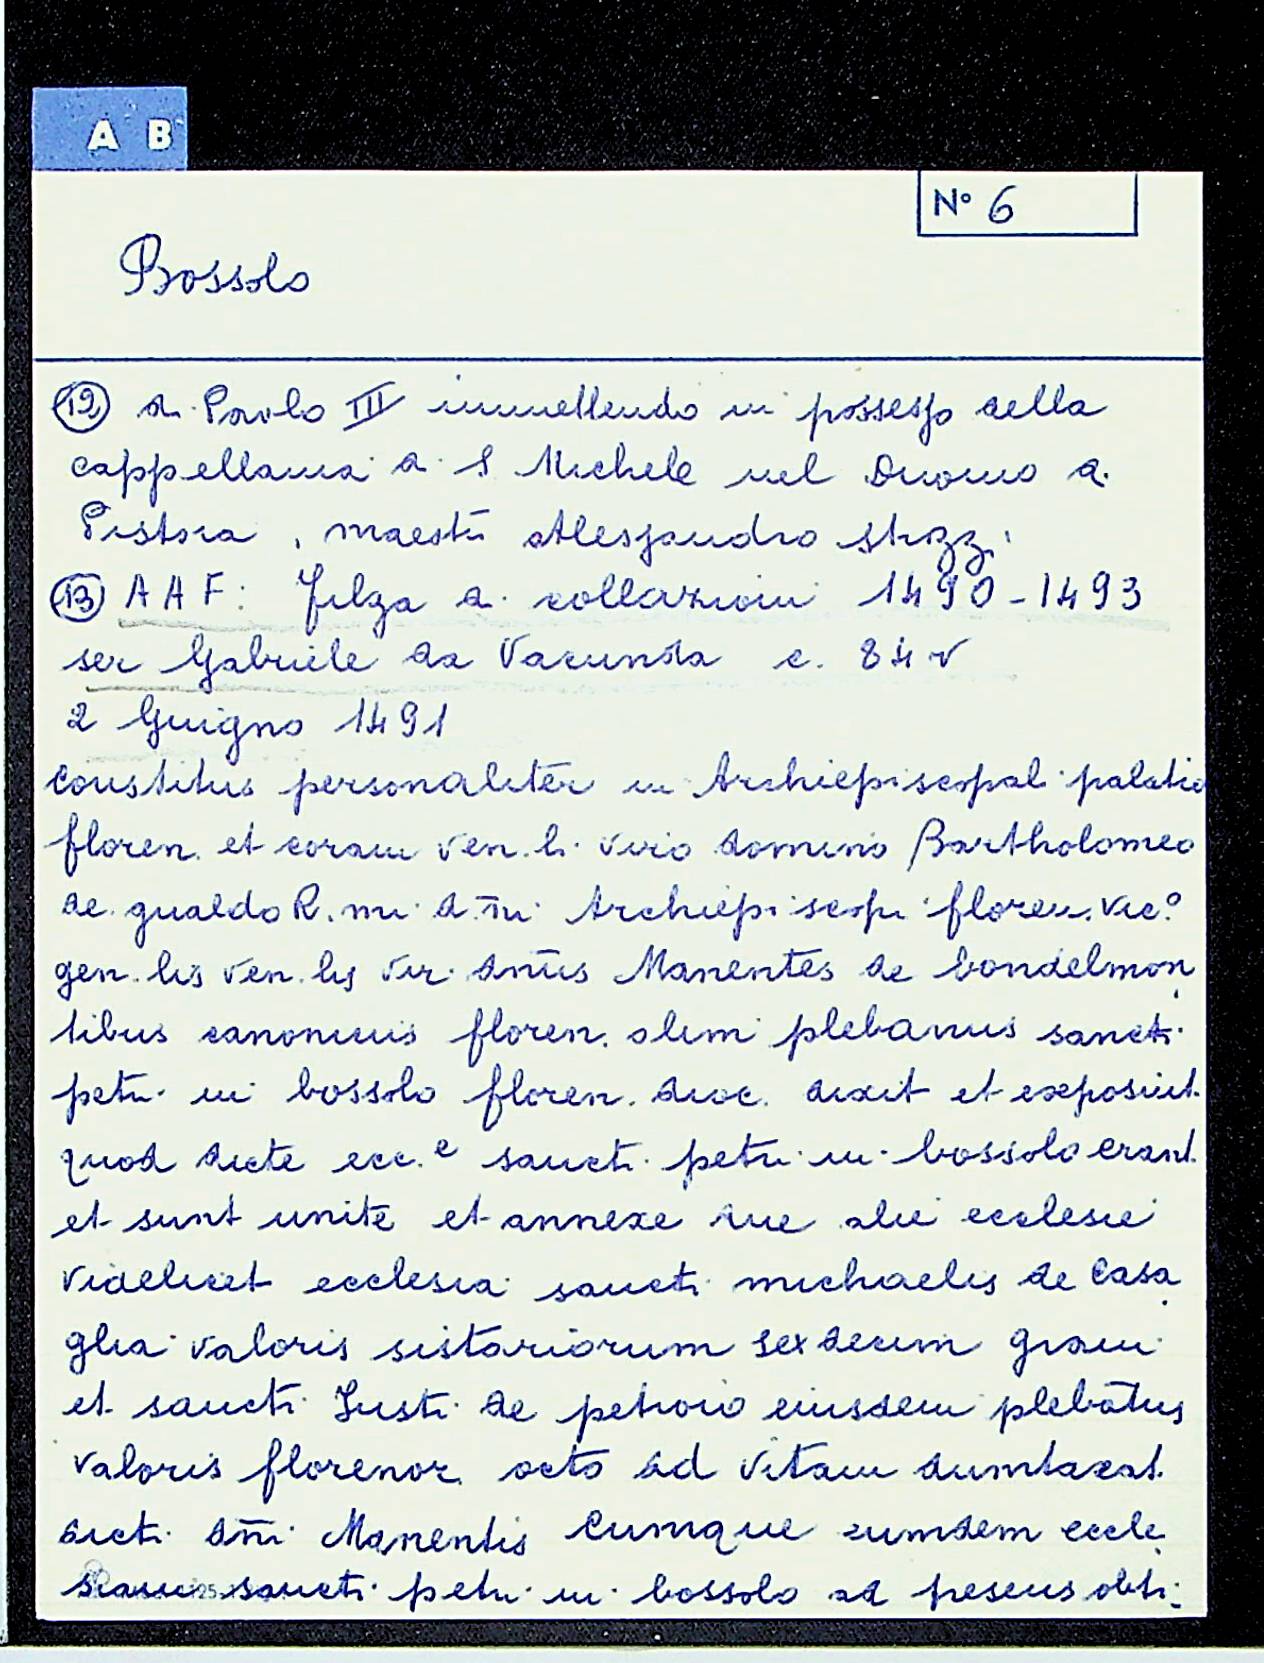 A B
N° 6
Bossolo
(12) di Paolo III immettendo in possesso della
cappellania di S Michele nel Duomo di
Pistoia, maestri Alessandro Strzzi
(13) A A F: filza di collazioni 1490-1493
ser Gabriele da Vacunda c. 84 v
2 Giugno 1491
constitus personaliter in Archiepiscopali palatio
floren. et coram ven. li. viro domino Bartholomeo
de gualdo R. mi d.ni Archiepiscopi floren. vic°
gen. lis ven. lis vir dnus Manentes de bondelmon
tibus canonicus floren. olim plebanus sancti
petri in bossolo floren. dioc. dixit et exposuit
quod dicte ecc.e sancti petri in bossolo erant
et sunt unite et annexe due alie ecclesie
videlicet ecclesia sancti michaelis de casa
glia valoris sistariorum sexdecim grani
et sancti Justi de petroio eiusdem plebatus
valoris florenor. octo ad vitam dumtaxat
dicti dni Manentis Cumque eumdem eccle
siam sancti petri in bossolo ad presens obti: